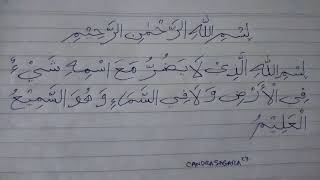 بِسْمِ اللّٰهِ الرَّحْمٰنِ الرَّحِيْمِ
بِسْمِ اللّٰهِ الَّذِيْ لَا يَضُرُّ مَعَ اسْمِهِ شَيْءٌ
فِي الْأَرْضِ وَلَا فِي السَّمَاءِ وَهُوَ السَّمِيْعُ
الْعَلِيْمُ
CANDRASAGARA